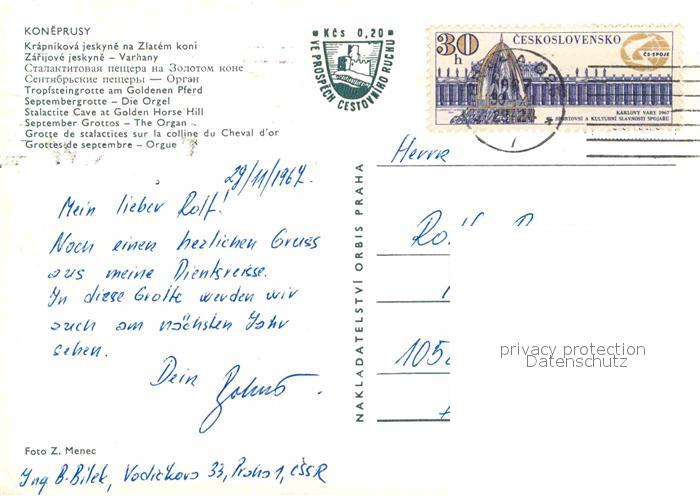 KONĚPRUSY
Krápníková jeskyně na Zlatém koni
Zářijové jeskyně – Varhany
Сталактитовая пещера на Золотом коне
Сентябрьские пещеры — Орган
Tropfsteingrotte am Goldenen Pferd
Septembergrotte – Die Orgel
Stalactite Cave at Golden Horse Hill
September Grottos – The Organ
Grotte de stalactites sur la colline du Cheval d'or
Grottes de septembre – Orgue
Kčs 0,20
VE PROSPĚCH CESTOVNÍHO RUCHU
30 h
ČESKOSLOVENSKO
ČS-SPOJE
KARLOVY VARY 1967
SPORTOVNÍ A KULTURNÍ SLAVNOSTI SPOJAŘŮ
29/11/1967.
Mein lieber Rolf!
Noch einen herzlichen Gruss
aus meine Dientsreise.
In diese Grotte werden wir
auch am nächsten Jahr
sehen.
Dein
NAKLADATELSTVÍ ORBIS PRAHA
Herrn
105
privacy protection
Datenschutz
Foto Z. Menec
Ing B. Bílek, Vodičkova 33, Praha 1, ČSSR